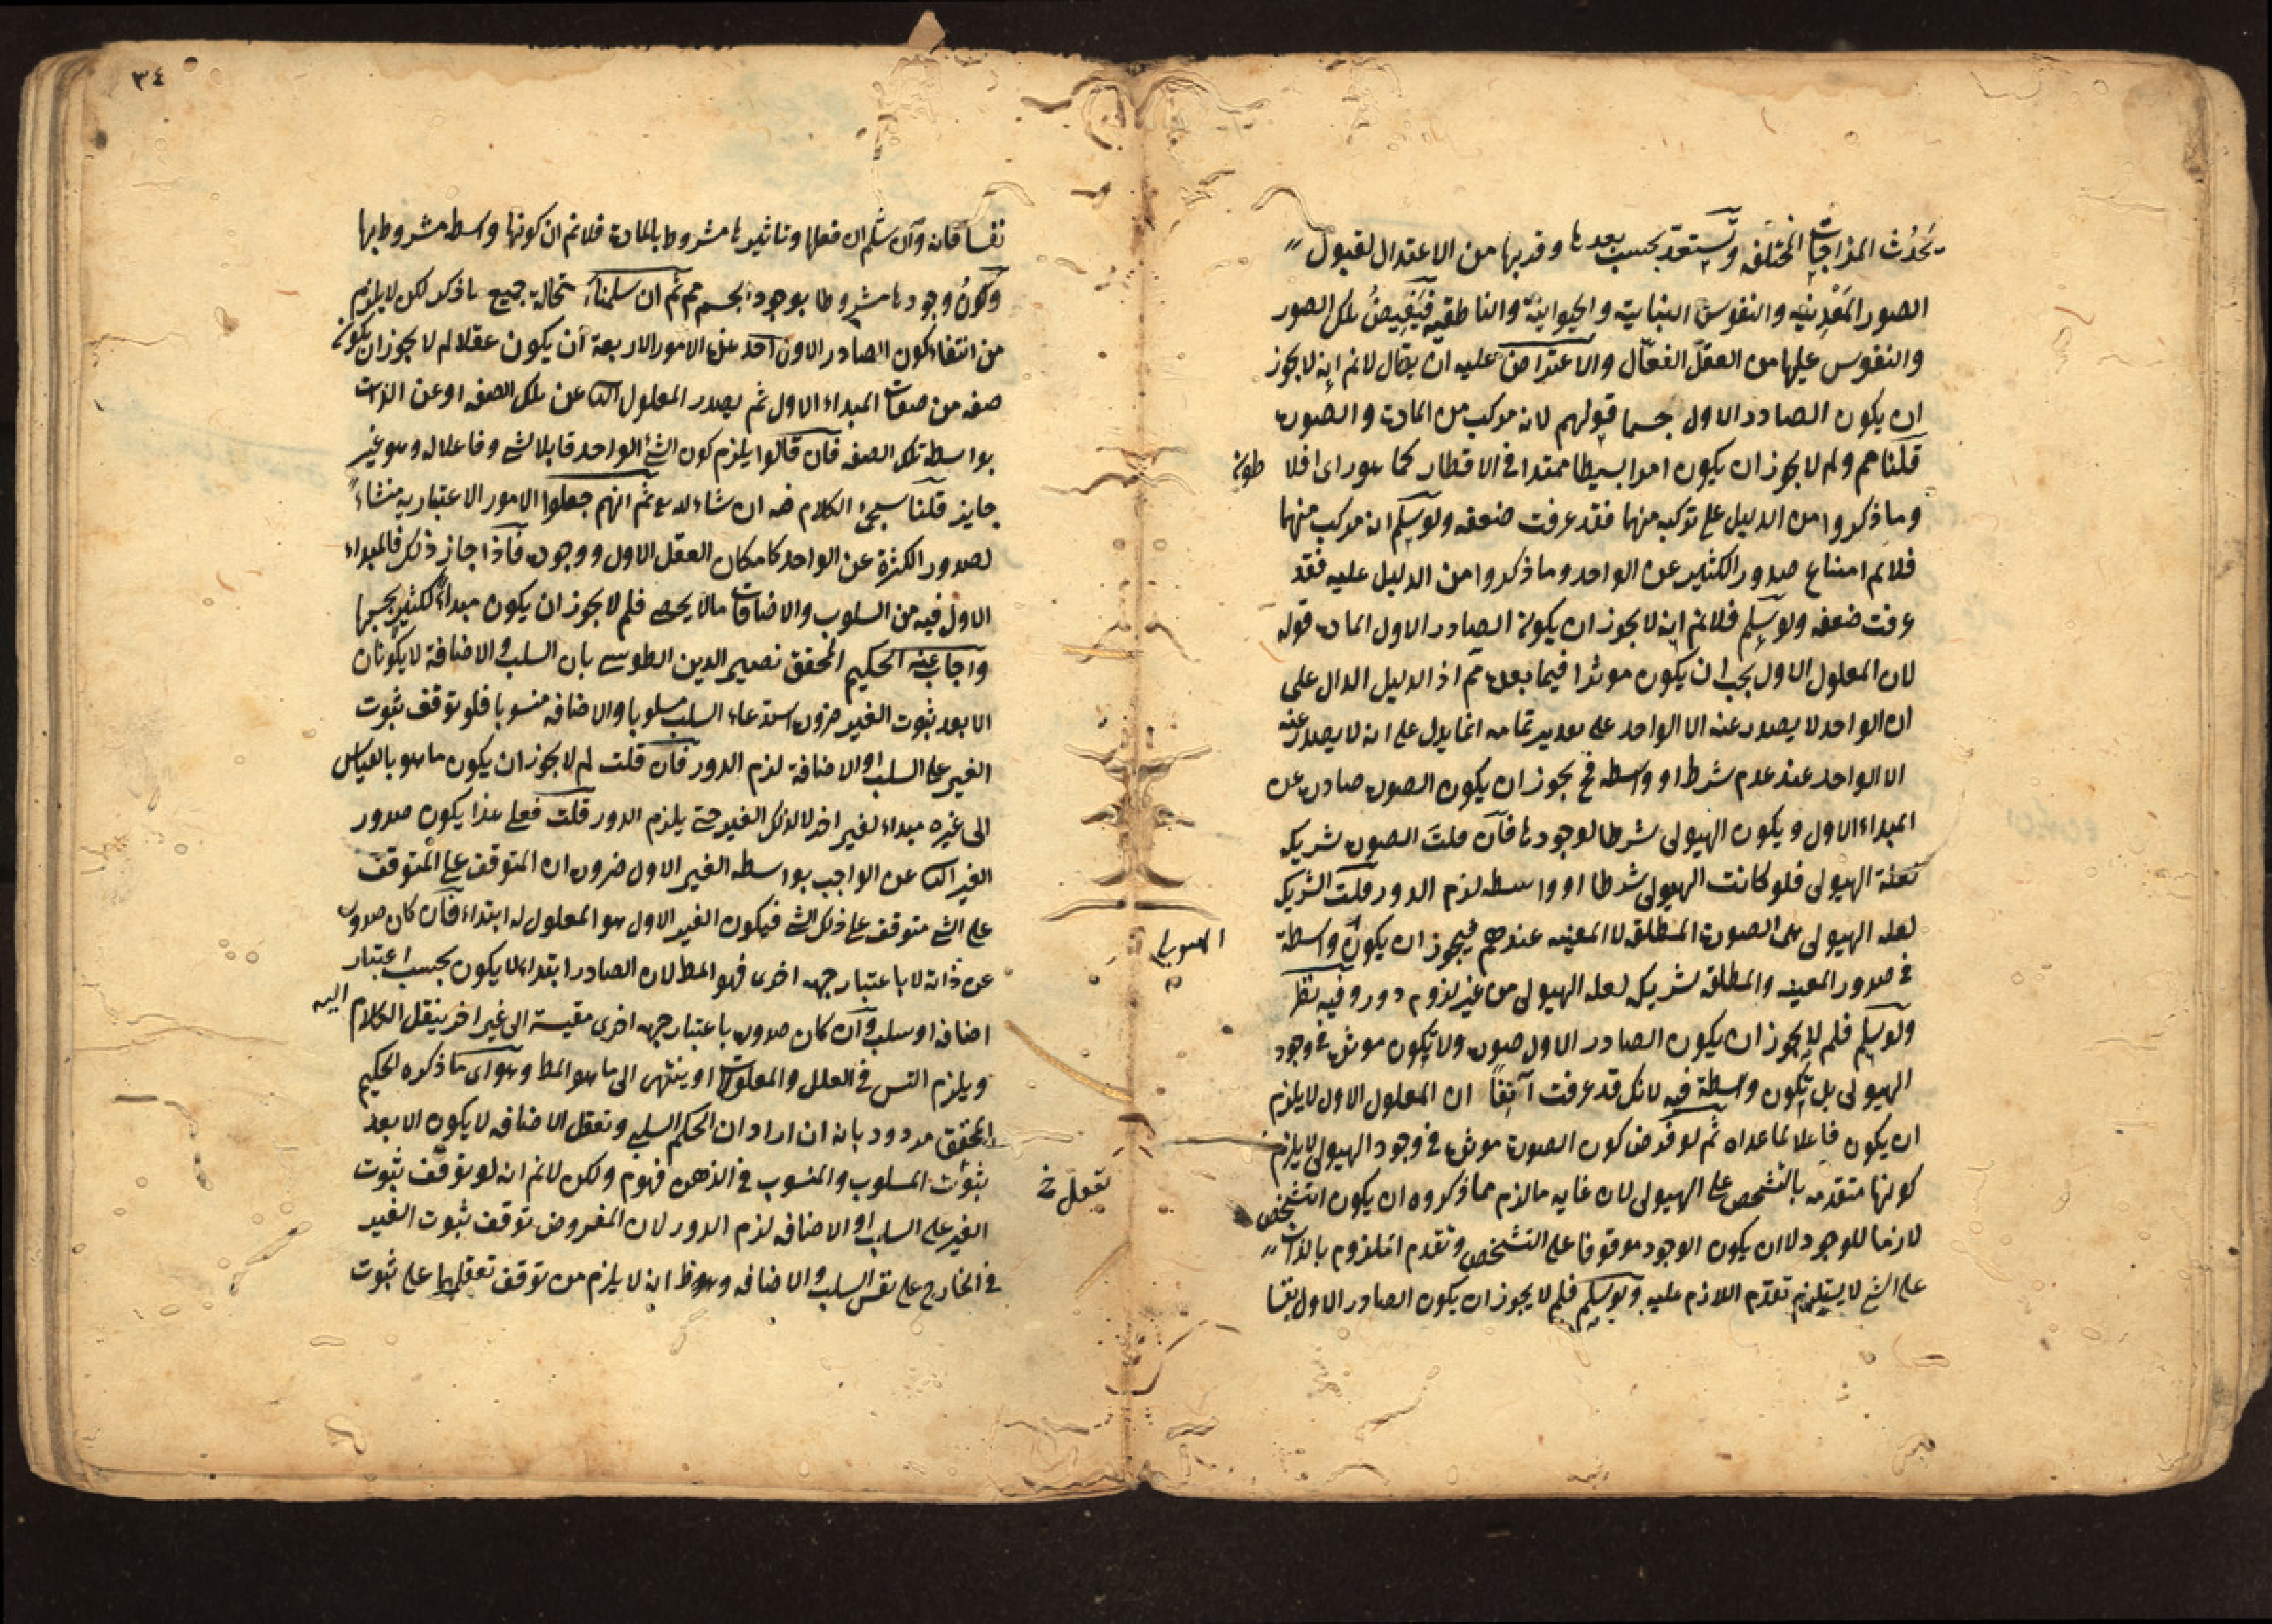 يَحْدُث المزاجات المختلفه وتستعدّ بحسب بعدها وقربها من الاعتدال لقبول
الصور المَعْدِنيه والنفوس النباتية والحيوانية والناطقيه فيَفِيضُ تلك الصور
والنفوس عليها من العقل الفعّال والاعتراض عليه ان يقال لانم انه لا يجوز
ان يكون الصادر الاول جسما قولهم لانه مركب من المادة والصورة
قلنا مم ولم لا يجوز ان يكون امرا بسيطا ممتدا فى الاقطار كما هو راى افلاطون
وما ذكروا من الدليل على تركبه منهما فقد عرفت ضعفه ولو سلم انه مركب منهما
فلانم امتناع صدور الكثير عن الواحد وما ذكروا من الدليل عليه فقد
عرفت ضعفه ولو سلم فلانم انه لا يجوز ان يكون الصادر الاول المادة قوله
لان المعلول الاول يجب ان يكون موثرا فيما بعده مم اذ الدليل الدال على
ان الواحد لا يصدر عنه الا الواحد على تقدير تمامه انما يدل على انه لا يصدر عنه
الا الواحد عند عدم شرط او واسطه فح يجوز ان يكون الصورة صادرة عن
المبداء الاول ويكون الهيولى شرطا لوجودها فان قلت الصورة شريكه
لعلة الهيولى فلو كانت الهيولى شرطا او واسطه لزم الدور قلت الشريك
لعله الهيولى هى الصورة المطلقه لا المعينه عندهم فيجوز ان يكون واسطة
الهيولى
فى صدور المعينه والمطلقه شريكه لعله الهيولى من غير لزوم دور وفيه نظر
ولو سلم فلم لا يجوز ان يكون الصادر الاول صورة ولا يكون موثرة فى وجود
الهيولى بل يكون واسطة فيه لانك قد عرفت آنِفًا ان المعلول الاول لا يلزم
ان يكون فاعلا لما عداه ثم لو فرض كون الصورة موثرة فى وجود الهيولى لا يلزم
كونها متقدمه بالتشخص على الهيولى لان غايه ما لزم مما ذكروه ان يكون التشخص
لازما للوجود لا ان يكون الوجود موقوفا على التشخص وتقدم الملزوم بالذات
على الشئ لا يستلزم تقدم اللازم عليه ولو سلم فلم لا يجوز ان يكون الصادر الاول نفسا
٣٤
نفسا فانه وان سلم ان فعلها وتاثيرها مشروط بالمادة فلانم ان كونها واسطه مشروط بها
وكونُ وجودها مشروطا بوجود الجسم مم ثم ان سلمنا استحالة جميع ما ذكر لكن لا يلزم
من انتفاء كون الصادر الاول احد هذه الامور الاربعة ان يكون عقلا لم لا يجوز ان يكون
صفه من صفات المبداء الاول ثم يصدر المعلول الثا عن تلك الصفه او عن الذات
بواسطة تلك الصفه فان قالوا يلزم كون الشئ الواحد قابلا لشئ وفاعلا له وهو غير
جايز قلنا سيجئ الكلام فيه ان شاء الله ثم انهم جعلوا الامور الاعتباريه منشاء
لصدور الكثرة عن الواحد كامكان العقل الاول ووجوده فاذا جاز ذلك فالمبداء
الاول فيه من السلوب والاضافات ما لا يحصى فلم لا يجوز ان يكون مبداء لكثير بحسبها
واجاب عنه الحكيم المحقق نصير الدين الطوسى بان السلب والاضافة لا يكونان
الا بعد ثبوت الغير ضرورة استدعاء السلب مسلوبا والاضافه منسوبا فلو توقف ثبوت
الغير على السلب او الاضافة لزم الدور فان قلت لم لا يجوز ان يكون ما هو بالقياس
الى غيره مبداء لغير اخر لا لذلك الغير حتى يلزم الدور قلت فعلى هذا يكون صدور
الغير الثا عن الواجب بواسطه الغير الاول ضرورة ان المتوقف على المتوقف
على الشئ متوقف على ذلك الشئ فيكون الغير الاول هو المعلول له ابتداء فان كان صدوره
عن ذاته لا باعتبار جهه اخرى فهو المط لان الصادر ابتداء لا يكون بحسب اعتبار
اضافه او سلب وان كان صدوره باعتبار جهه اخرى مقيسة الى غير اخر ينقل الكلام اليه
ويلزم التس فى العلل والمعلولات او ينتهى الى ما هو المط وهو اى ما ذكره الحكيم
المحقق مردود بانه ان اراد ان الحكم السلبى وتعقل الاضافه لا يكون الا بعد
ثبوت المسلوب والمنسوب فى الذهن فهو مم ولكن لانم انه لو توقف ثبوت
تعقل خ
الغير على السلب او الاضافه لزم الدور لان المفروض توقف ثبوت الغير
فى الخارج على نفس السلب والاضافه وهو ظ انه لا يلزم من توقف تعقلهما على ثبوت